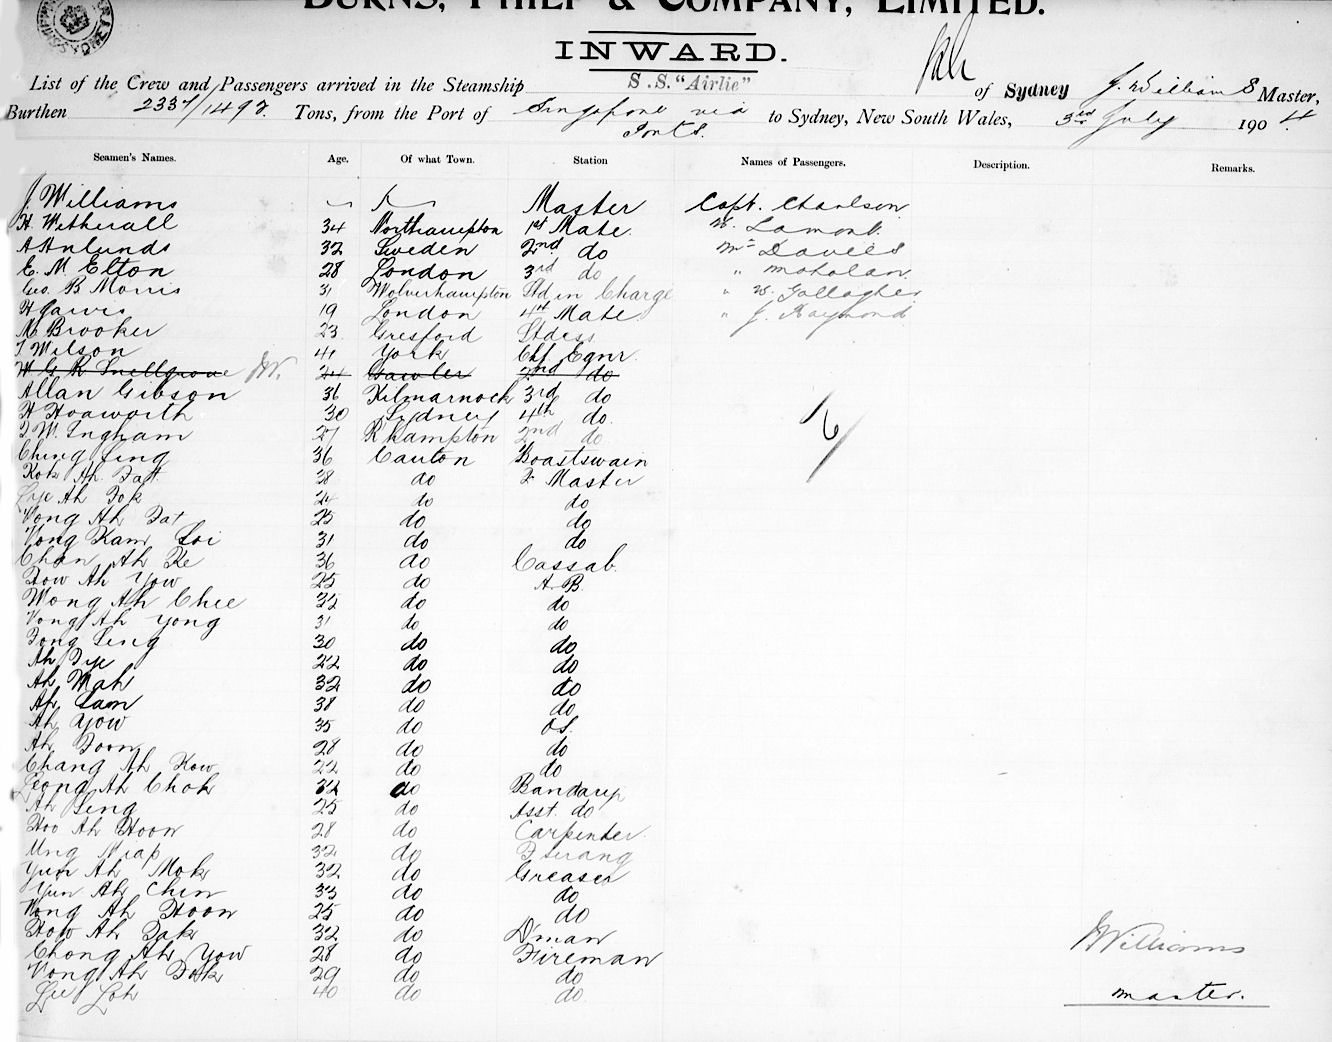 BURNS, PHILP & COMPANY, LIMITED.
INWARD.
List of the Crew and Passengers arrived in the Steamship S.S. "Airlie" of Sydney J. Williams Master,
Burthen 2337/1492 Tons, from the Port of Singapore via Ports. to Sydney, New South Wales, 3rd July 1904
Seamen's Names. Age. Of what Town. Station Names of Passengers. Description. Remarks.
J Williams Master Capt. Charlson
H. Wetherall 34 Northampton 1st Mate. W. Lamont.
A Anlunds 32 Sweden 2nd do Mr Davies
E. M. Elton 28 London 3rd do "
Geo. B Morris 31 Wolverhampton Std in Charge " W. Gallagher
H Jarvis 19 London 4th Mate. " J. Raymond
M. Brooker 23 Gresford Stdess
T Wilson 41 York Chf Egnr.
W G R Snellgrove 24 Gawler 2nd do
Allan Gibson 36 Kilmarnock 3rd do
H Hoaworth 30 Sydney 4th do.
J W. Ingham 27 R'hampton 2nd do.
Ching Sing 36 Canton Boastswain
Kok Ah Fatt 38 do Master
Ah Fok 24 do do
Wong Ah Fat 25 do do
Wong Kam Loi 31 do do
Chan Ah Ke 36 do Cassab.
How Ah Yow 25 do A.B.
Wong Ah Chee 32 do do
Wong Ah Yong 31 do do
Fong Sing 30 do do
Ah Fye 22 do do
Ah Mah 32 do do
Ah Sam 38 do do
Ah Yow 35 do OS.
Ah Foon 28 do do
Chang Ah Kow 22 do do
Leong Ah Chok 32 do Bandary
Ah Sing 25 do Asst. do
Hoo Ah Hoon 28 do Carpenter.
Ung Niap 32 do F serang
Yun Ah Mok 32 do Greaser
Yun Ah Chin 33 do do
Wong Ah Hoon 25 do do
How Ah Fak 32 do D'man
Chong Ah Yow 28 do Fireman
Wong Ah Fook 29 do do
Lee Loh 40 do do
6
J Williams
master.